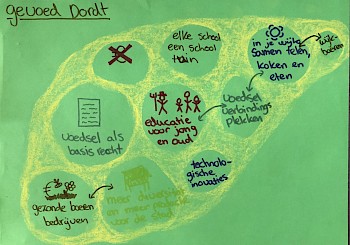 gevoed Dordt
elke school
een school
tuin
in je wijk
samen telen,
koken en
eten
wijk-
boeren
voedsel
verbindings
plekken
educatie
voor jong
en oud
voedsel als
basis recht
technolo-
gische
inovaties
gezonde boeren
bedrijven
meer
en meer
voor de